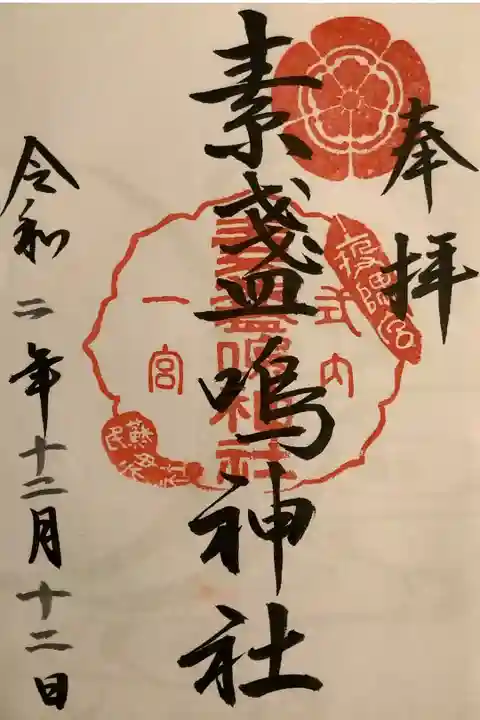 奉拝
素盞嗚神社
式内
一宮
素盞嗚神社
蘇民将来
令和二年十二月十二日